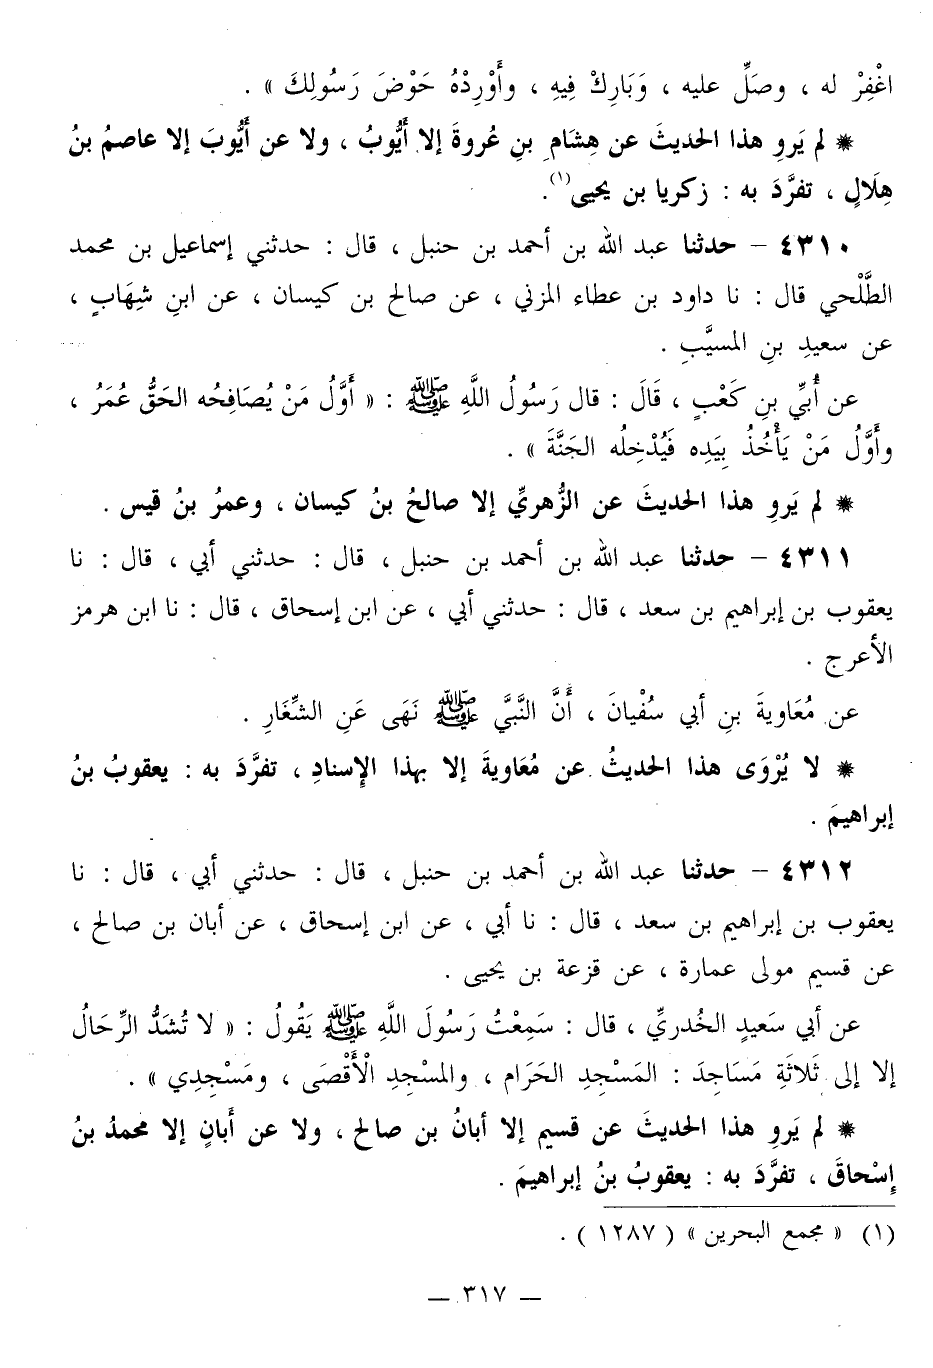 اغْفِرْ له ، وصَلِّ عليه ، وَبَارِكْ فِيهِ ، وأَوْرِدْهُ حَوْضَ رَسُولِكَ » .
* لم يَروِ هذا الحديثَ عن هِشَامِ بنِ عُروةَ إلا أَيُّوبُ ، ولا عن أَيُّوبَ إلا عاصمُ بنُ
هِلَالٍ ، تفرَّدَ به : زكريا بن يحيى(١).
٤٣١٠ – حدثنا عبد الله بن أحمد بن حنبل ، قال : حدثني إسماعيل بن محمد
الطَّلْحي قال : نا داود بن عطاء المزني ، عن صالح بن كيسان ، عن ابنِ شِهَابٍ ،
عن سعيدِ بنِ المسيَّبِ .
عن أُبَيِّ بنِ كَعْبٍ ، قَالَ : قال رَسُولُ اللَّهِ ﷺ : « أَوَّلُ مَنْ يُصَافِحُه الحَقُّ عُمَرُ ،
وأَوَّلُ مَنْ يَأْخُذُ بِيَدِه فَيُدْخِلُه الجَنَّةَ » .
* لم يَروِ هذا الحديثَ عن الزُّهريِّ إلا صالحُ بنُ كيسان ، وعمرُ بنُ قيس .
٤٣١١ – حدثنا عبد الله بن أحمد بن حنبل ، قال : حدثني أبي ، قال : نا
يعقوب بن إبراهيم بن سعد ، قال : حدثني أبي ، عن ابن إسحاق ، قال : نا ابن هرمز
الأعرج .
عن مُعَاويةَ بنِ أبي سُفْيانَ ، أَنَّ النَّبيَّ ﷺ نَهَى عَنِ الشِّغَارِ .
* لا يُرْوَى هذا الحديثُ عن مُعَاويةَ إلا بهذا الإِسنادِ ، تفرَّدَ به : يعقوبُ بنُ
إبراهيمَ .
٤٣١٢ – حدثنا عبد الله بن أحمد بن حنبل ، قال : حدثني أبي ، قال : نا
يعقوب بن إبراهيم بن سعد ، قال : نا أبي ، عن ابن إسحاق ، عن أبان بن صالح ،
عن قسيم مولى عمارة ، عن قزعة بن يحيى .
عن أبي سَعيدٍ الخُدريِّ ، قال : سَمِعْتُ رَسُولَ اللَّهِ ﷺ يَقُولُ : « لا تُشَدُّ الرِّحَالُ
إلا إلى ثَلَاثَةِ مَسَاجِدَ : المَسْجِدِ الحَرَامِ ، والمسْجِدِ الْأَقْصَى ، ومَسْجِدِي » .
* لم يَروِ هذا الحديثَ عن قسيم إلا أبانُ بن صالح ، ولا عن أَبانٍ إلا محمدُ بنُ
إِسْحاقَ ، تفرَّدَ به : يعقوبُ بنُ إبراهيمَ .
(١) « مجمع البحرين » ( ١٢٨٧ ) .
— ٣١٧ —